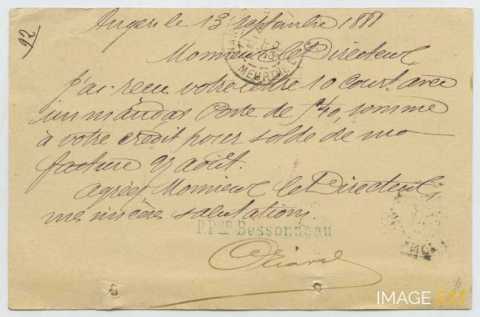 92
Angers le 13 septembre 1881
Monsieur le Directeur
J'ai reçu votre lettre 10 court. avec
un mandat Poste de somme
à votre crédit pour solde de ma
facture 9 août.
agréez Monsieur le Directeur
mes sincères salutations.
P. Pon Bessonneau
IMAGE'EST